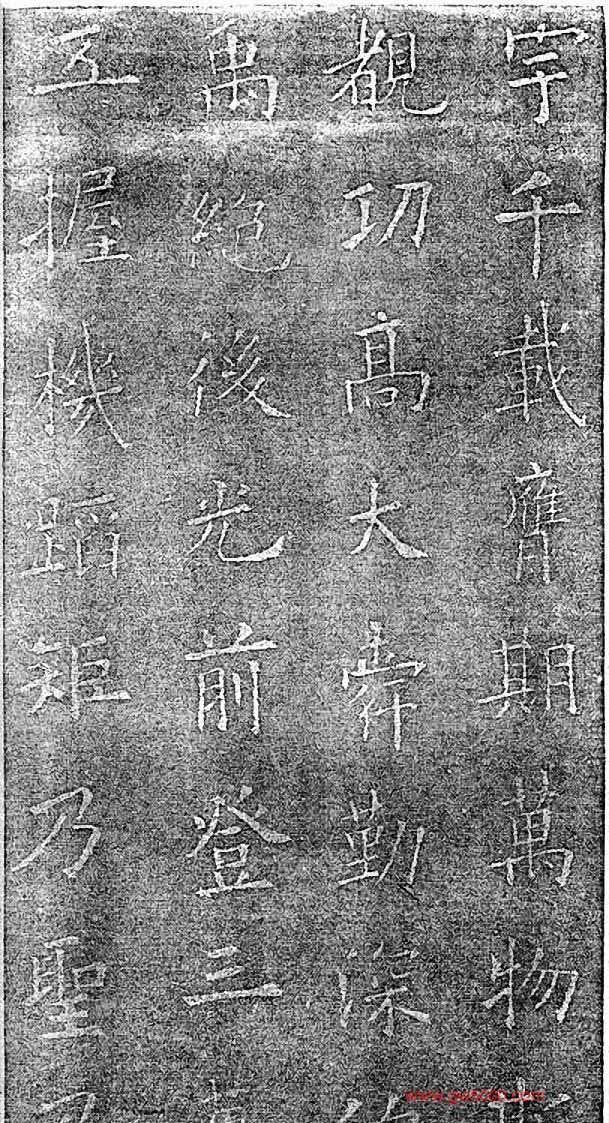 宇千載膺期萬物
覩功高大舜勤深
禹絕後光前登三
五握機蹈矩乃聖
www.gs8000.com